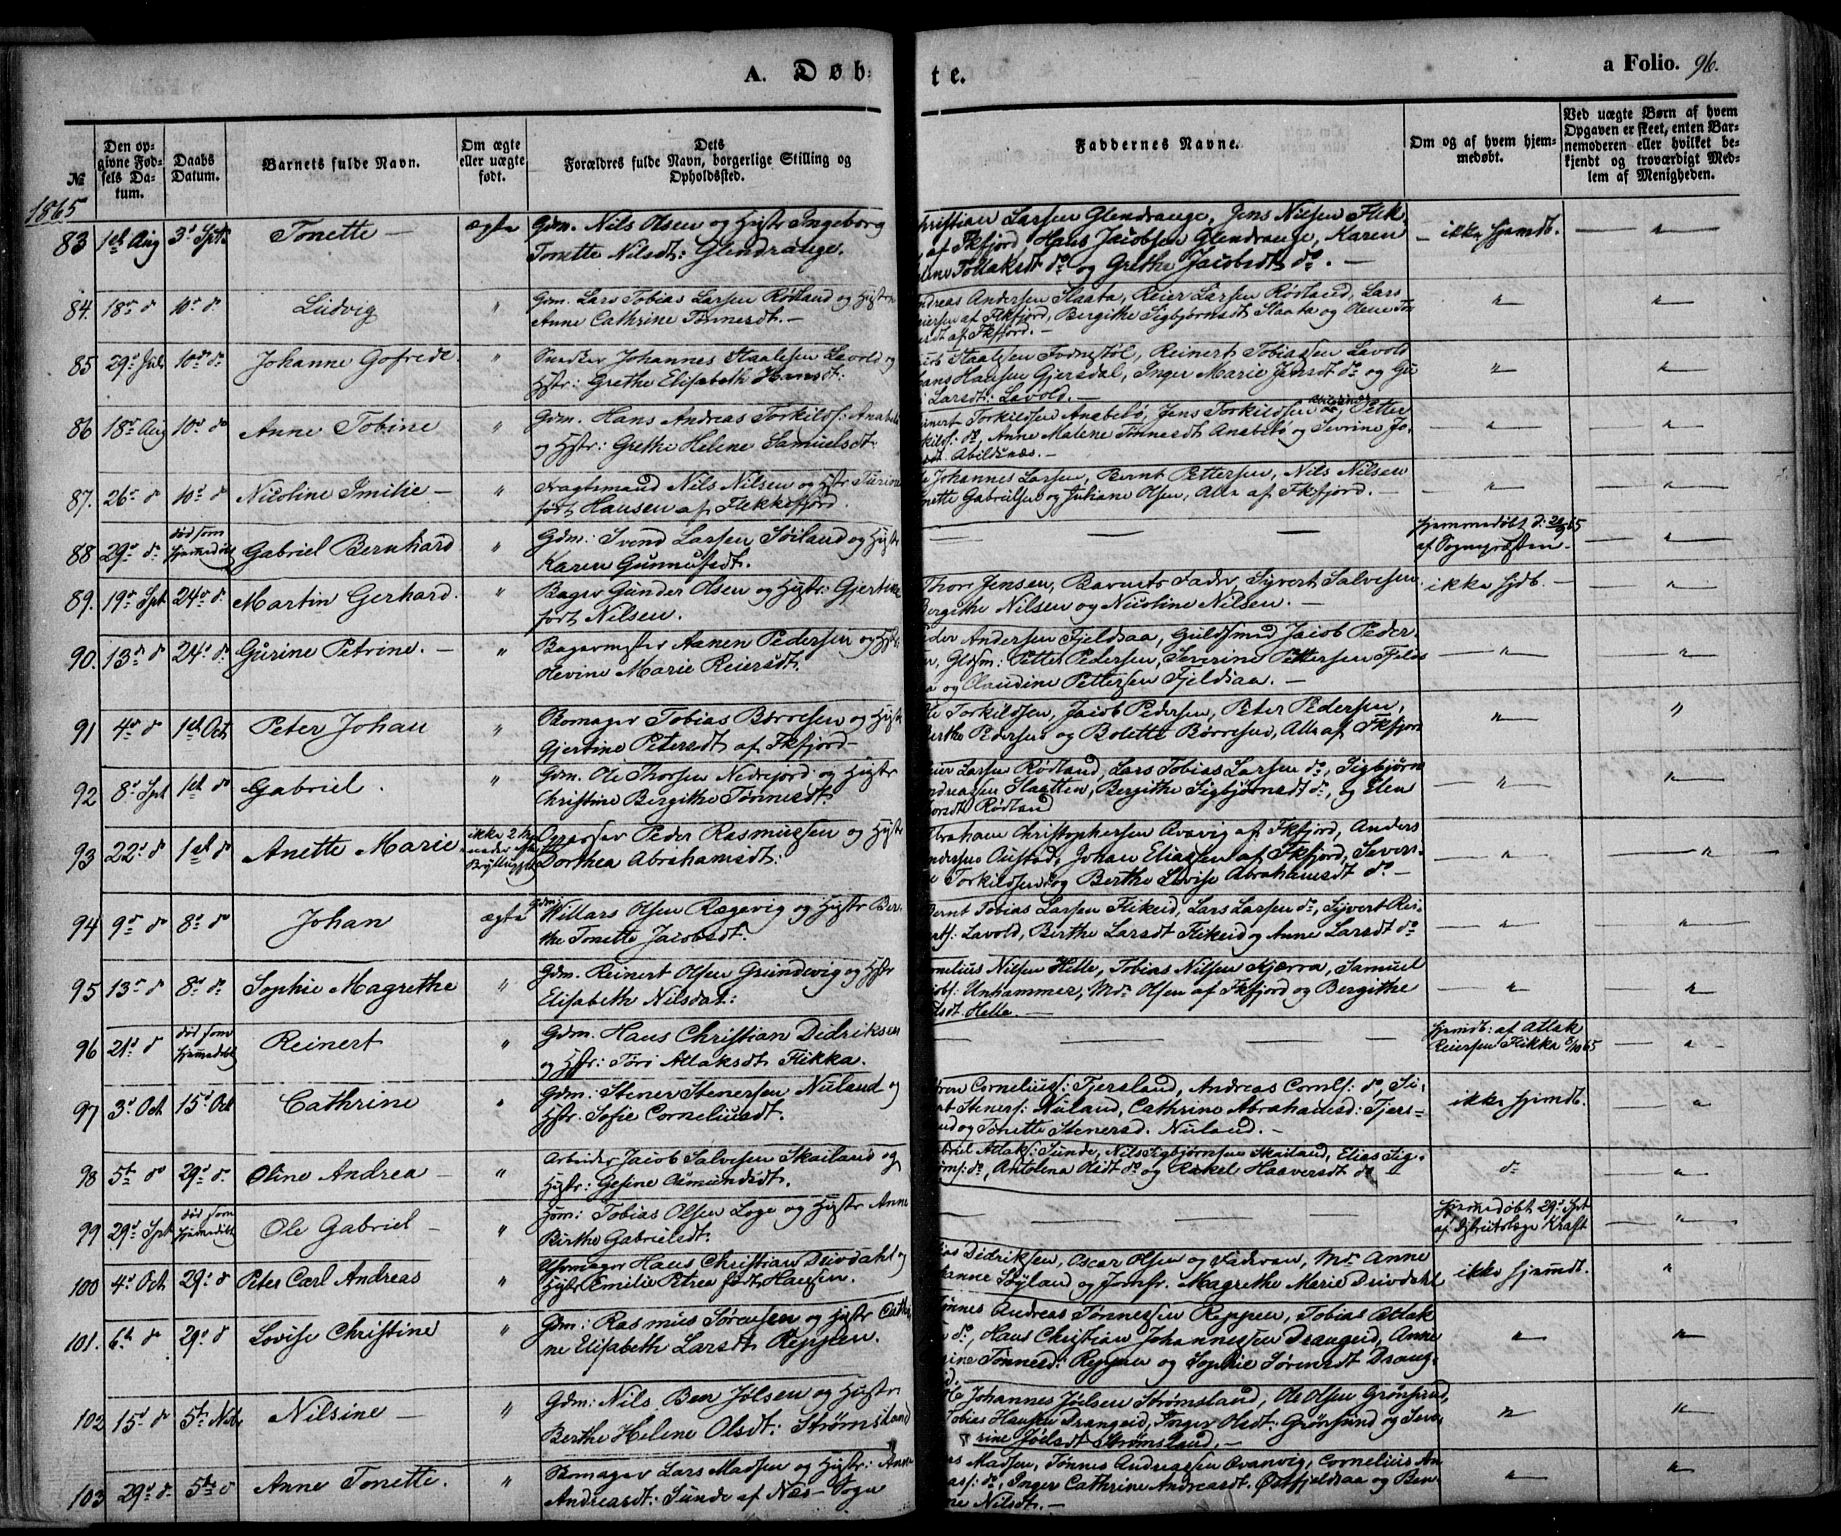 A. Døb- te. a Folio. 96.
№
Den opgivne Fødsels Datum.
Daabs Datum.
Barnets fulde Navn.
Om ægte eller uægte født.
Dets Forældres fulde Navn, borgerlige Stilling og Opholdssted.
Faddernes Navne.
Om og af hvem hjemmedøbt.
Ved uægte Børn af hvem Opgaven er skeet, enten Barnemoderen eller hvilket bekjendt og troværdigt Medlem af Menigheden.
1865
83 1st Aug 3d Spt Tonette — ægte Gdm. Nils Olsen og Hustr Ingeborg
Tonette Nilsdt: Glendrange.
Christian Larsen Glendrange, Jens Nilsen Flik
af Fkfjord Hans Jacobsen Glendrange, Karen
Tollaksdt do og Grethe Jacobsdt do. — ikke hjemdb. — "
84. 18de d 10de d Ludvig " Gdm. Lars Tobias Larsen Rødland og Hustr
Anne Cathrine Tønnesdt. —
Andreas Andersen Slaata, Reier Larsen Rødland, Lars
Reiersen af Fkfjord, Bergithe Sigbjørnsdt Slaata og Olene
af Fkfjord. — " "
85 29de Juli 10de d Johanne Gofrede " Snedker Johannes Staalesen Lavold og
Hstr: Grethe Elisabeth Hansdt:
Staalesen Fodnestøl, Reinert Tobiassen Lavold
Hans Hansen Gjersdal, Inger Marie Jensdt do og
Larsdt: Lavold. — " "
86 18de Aug 10de d Anne Tobine " Gdm. Hans Andreas Torkilds: Anabelø
og Hstr: Grethe Helene Samuelsdt:
Reinert Torkildsen Anabelø, Jens Torkildsen Abildsnæs, Petter
Torkilds: do, Anne Malene Tønnesdt Anabelø og Severine
Abildsnæs. — " "
87. 26de d 10de d Nicoline Emilie — " Fragtemand Nils Nilsen og Hstr Turine
født Hansen af Flekkefjord.
Johannes Larsen, Bernt Pettersen, Nils Nilsen
Gabrielsen og Juliane Olsen, Alle af Fkfjord. — " "
88 29de d død som hjemmedøbt Gabriel Bernhard " Gdm: Svend Larsen Søiland og Hustr
Karen Gunnufsdt.
— — — hjemmedøbt d: 65
af Sognepræsten — "
89. 19de Spt 24de d Martin Gerhard. " Bager Gunder Olsen og Hustr: Gjertine
født Nilsen.
Thor Jensen, Barnets Fader, Syvert Salvesen
Bergithe Nilsen og Nicoline Nilsen. — ikke hjdb. — "
90. 13de d 24de d Gurine Petrine. — " Bagermester Aanen Pedersen og Hstr
Olevine Marie Reiersdt.
Peder Andersen Fjeldsaa, Guldsmed Jacob Peder-
sen, Gldsm: Petter Pedersen, Severine Pettersen Fjeld-
saa og Claudine Pettersen Fjeldsaa. — " "
91 4de d 1st Oct Peter Johan " Skomager Tobias Børresen og Hust
Gjertine Petersdt af Fkfjord —
Ole Torkildsen, Jacob Pedersen, Peter Pedersen,
Berthe Pedersen og Bolette Børresen, Alle af Fkfjord " "
92 8de Spt 1st d Gabriel. " Gdm. Ole Thorsen Nedrejord og Hustr
Christine Bergithe Tønnesdt.
Reier Larsen Rødland, Lars Tobias Larsen do, Sigbjørn
Andreasen Slaatten, Bergithe Sigbjørnsdt do, og Elen
Rødland " "
93 22de d 1st d Anette Marie ikke 2 Maaneder efter Brylluppet Opsøser Peder Rasmussen og Hustr
Dorthea Abrahamsdt:
Abraham Christophersen Avavig af Fkfjord, Anders
Andersen Austad, Johan Eliassen af Fkfjord, Sever-
ine Torkildsen og Berthe Lovise Abrahamsdt do — " "
94 9de d 8de d Johan ægte Gdm. Willars Olsen Rægevig og Hustr Ber-
the Tonette Jacobsdt.
Bernt Tobias Larsen Flikeid, Lars Larsen do, Syvert Rei-
nerts: Lavold, Berthe Larsdt Flikeid og Anne Larsdt do " "
95 13de d 8de d Sophie Magrethe " Gdm. Reinert Olsen Grundevig og Hstr
Elisabeth Nilsdat:
Cornelius Nilsen Helle, Tobias Nilsen Kjærra, Samuel
Unhammer, Md Olsen af Fkfjord og Bergithe
Helle — " "
96 21de d død som hjemmedøbt Reinert " Gdm. Hans Christian Didriksen
og Hstr: Tøri Atlaksdt Flikka.
— — — hjemdb: af Atlak
Reiersen Flikka 8/10 65 — "
97 3de Oct 15de Oct Cathrine " Gdm: Stener Stenersen Nuland og
Hstr: Sofie Corneliusdt.
Cornelius: Fjersland, Andreas Corns: do, Si-
vert Steners: Nuland, Cathrine Abrahamsd: Fjers-
land og Tonette Stenersd. Nuland. — ikke hjemdb. "
98 5te d 29de d Oline Andrea — " Arbeider Jacob Salvesen Skailand og
Hustr: Gesine Asmundsdt.
Gabriel Atlaks: Sunde, Nils Sigbjørnsen Skailand, Elias Sig-
bjørns: do, Antolena Olsdt do og Rakel Haaversdt do do "
99 29de Spt død som hjemmedøbt Ole Gabriel — " Hsm: Tobias Olsen Loge og Hustr Anne
Birthe Gabrielsdt.
— — — hjemmedøbt 29de Spt
af Districtslæge Kraft — "
100 4de Oct 29de d Peter Carl Andreas " Uhrmager Hans Christian Duvdahl og
Hustr Emilie Petrea født Hansen.
Didriksen, Oscar Olsen og Faderen, Md Anne
Hanne Søyland og Jomfr. Magrethe Marie Duvdahl ikke hjemdb. "
101. 6te d 29de d Lovise Christine " Gdm: Rasmus Sørensen og Hustr Cathri-
ne Elisabeth Larsdt Reppen.
Tønnes Andreas Tønnessen Reppen, Tobias Atlak-
sen do, Hans Christian Johannessen Drangeid, Anne
Tønnesd: Reppen og Sophie Sørensdt Drang-
eid. " "
102 15de d 5te Nvbr Nilsine — " Gdm: Nils Beer Jølsen og Hustr.
Berthe Helene Olsdt: Strømsland
Ole Johannes Jøelsen Strømsland, Ole Olsen Grønsund,
Tobias Hansen Drangeid, Inger Olsdt: Grønsund og Seve-
rine Jøelsdt Strømsland. — " "
103 29de d 5te d Anne Tonette. " Skomager Lars Madsen og Hustr: Anne
Andreasdt: Sunde af Næs Sogn
Madsen, Tønnes Andreassen Avanvig, Cornelius An-
dreass: do, Inger Cathrine Andreasdt. Østfjeldsaa og Ben-
Nilsdt. — " "